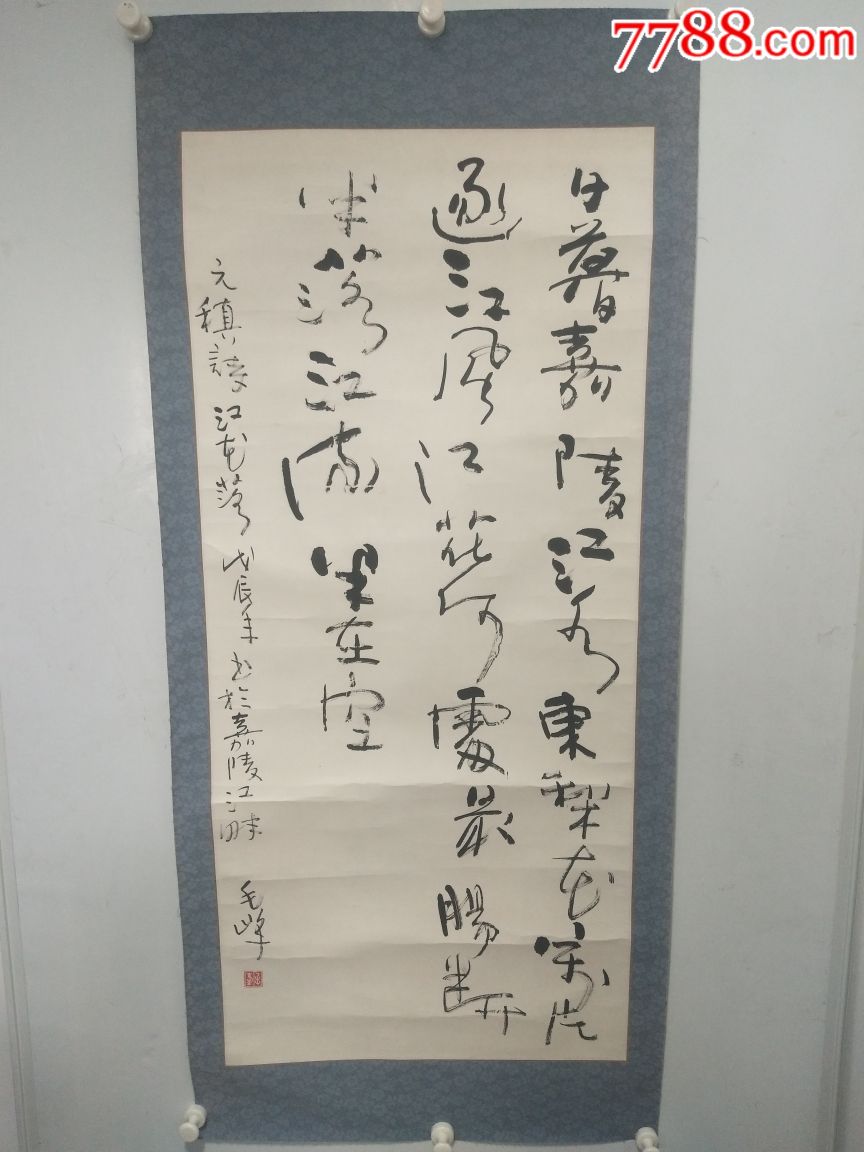 7788.com
日暮嘉陵江水東梨花萬片
逐江風江花何處最腸斷
半落江流半在空
元稹詩江花落戊辰年书於嘉陵江畔
毛峰